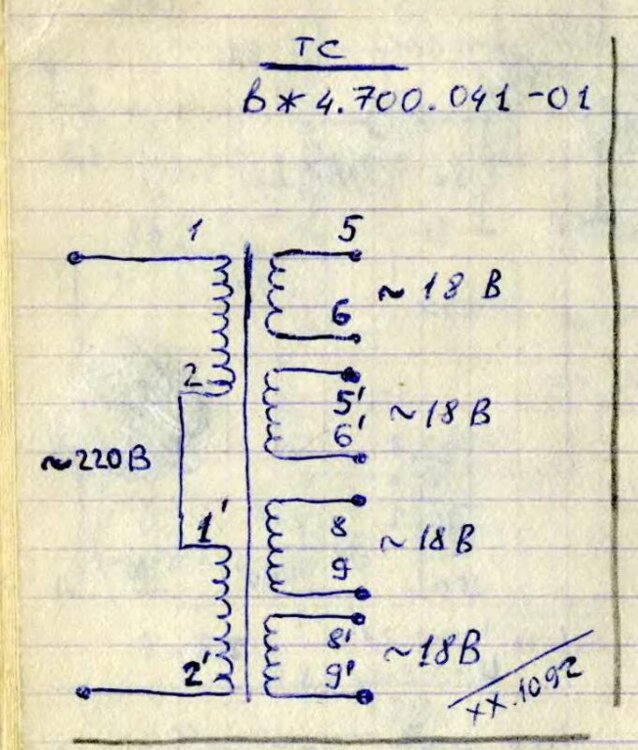 ТС
В*4.700.041-01
1
5
~18 В
6
2
5'
~18 В
6'
~220В
1'
8
~18 В
9
2'
8'
~18 В
9'
хх.1092